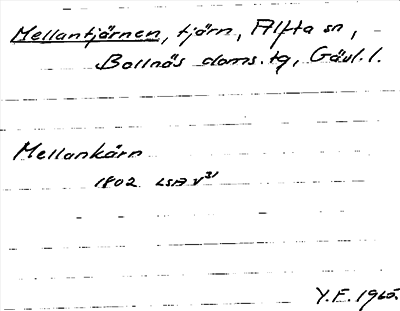 Mellantjärnen, tjärn, Alfta sn,
Bollnäs doms.tg, Gävl. l.
Mellankärn
1802 LSA V31
Y.F. 1965.